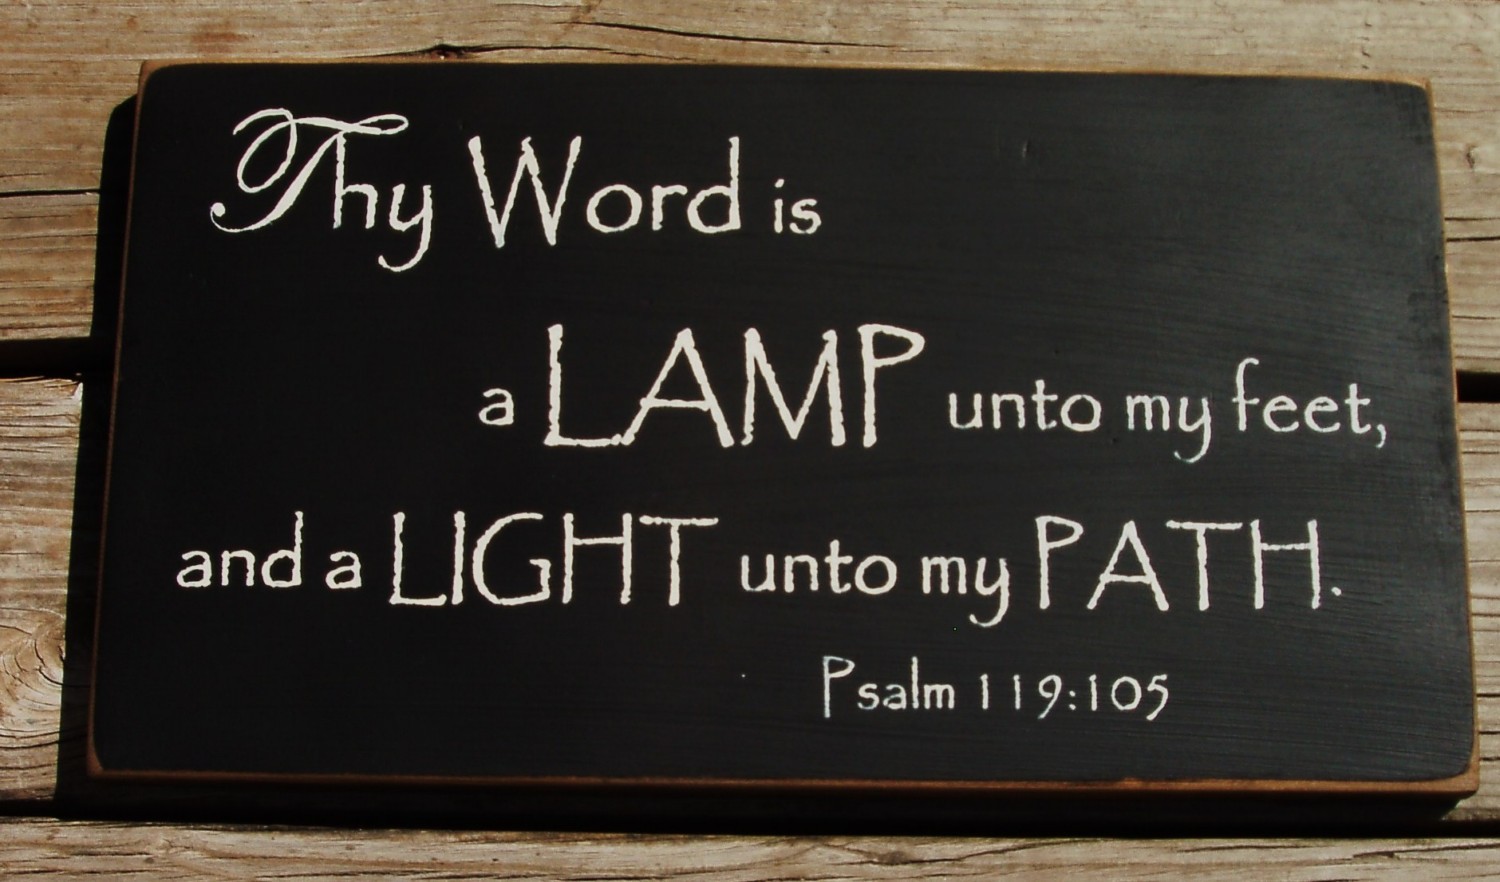 Thy Word is
a LAMP unto my feet,
and a LIGHT unto my PATH.
Psalm 119:105